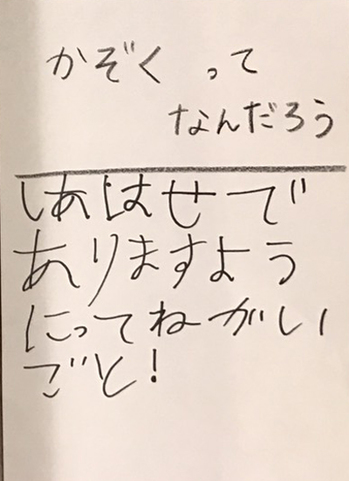 かぞく って
なんだろう
しあはせで
ありますよう
にってねがい
ごと！